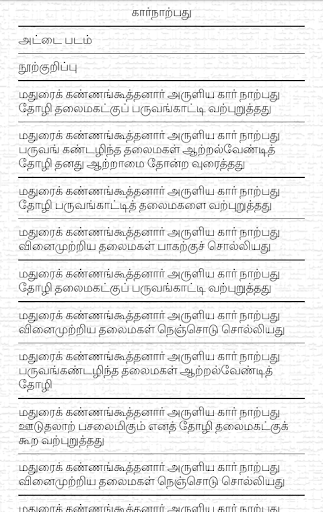 கார்நாற்பது
அட்டை படம்
நூற்குறிப்பு
மதுரைக் கண்ணங்கூத்தனார் அருளிய கார் நாற்பது
தோழி தலைமகட்குப் பருவங்காட்டி வற்புறுத்தது
மதுரைக் கண்ணங்கூத்தனார் அருளிய கார் நாற்பது
பருவங் கண்டழிந்த தலைமகள் ஆற்றல்வேண்டித்
தோழி தனது ஆற்றாமை தோன்ற வுரைத்தது
மதுரைக் கண்ணங்கூத்தனார் அருளிய கார் நாற்பது
தோழி பருவங்காட்டித் தலைமகளை வற்புறுத்தது
மதுரைக் கண்ணங்கூத்தனார் அருளிய கார் நாற்பது
வினைமுற்றிய தலைமகள் பாகற்குச் சொல்லியது
மதுரைக் கண்ணங்கூத்தனார் அருளிய கார் நாற்பது
தோழி தலைமகட்குப் பருவங்காட்டி வற்புறுத்தது
மதுரைக் கண்ணங்கூத்தனார் அருளிய கார் நாற்பது
வினைமுற்றிய தலைமகள் நெஞ்சொடு சொல்லியது
மதுரைக் கண்ணங்கூத்தனார் அருளிய கார் நாற்பது
பருவங்கண்டழிந்த தலைமகள் ஆற்றல்வேண்டித்
தோழி
மதுரைக் கண்ணங்கூத்தனார் அருளிய கார் நாற்பது
ஊடுதலாற் பசலைமிகும் எனத் தோழி தலைமகட்குக்
கூற வற்புறுத்தது
மதுரைக் கண்ணங்கூத்தனார் அருளிய கார் நாற்பது
வினைமுற்றிய தலைமகள் நெஞ்சொடு சொல்லியது
மதுரைக் கண்ணங்கூத்தனார் அருளிய கார் நாற்பது